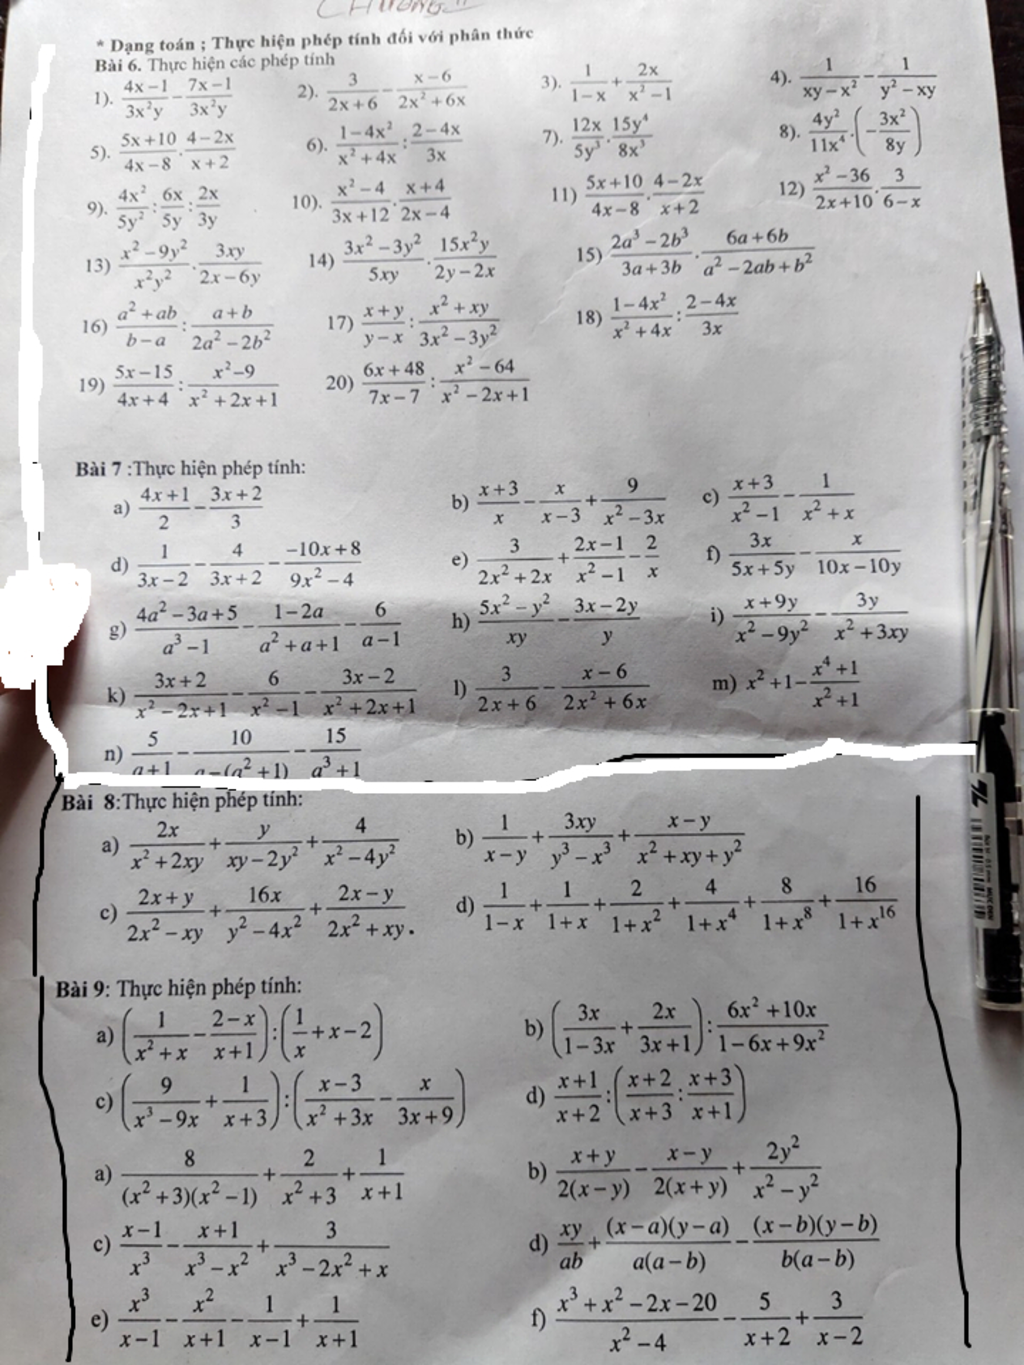 CHƯƠNG II
* Dạng toán ; Thực hiện phép tính đối với phân thức
Bài 6. Thực hiện các phép tính
1). \frac{4x-1}{3x^2y} - \frac{7x-1}{3x^2y} 2). \frac{3}{2x+6} - \frac{x-6}{2x^2+6x} 3). \frac{1}{1-x} + \frac{2x}{x^2-1} 4). \frac{1}{xy-x^2} - \frac{1}{y^2-xy}
5). \frac{5x+10}{4x-8} . \frac{4-2x}{x+2} 6). \frac{1-4x^2}{x^2+4x} : \frac{2-4x}{3x} 7). \frac{12x}{5y^3} . \frac{15y^4}{8x^3} 8). \frac{4y^2}{11x^4} . (-\frac{3x^2}{8y})
9). \frac{4x^2}{5y^2} : \frac{6x}{5y} : \frac{2x}{3y} 10). \frac{x^2-4}{3x+12} . \frac{x+4}{2x-4} 11) \frac{5x+10}{4x-8} . \frac{4-2x}{x+2} 12) \frac{x^2-36}{2x+10} . \frac{3}{6-x}
13) \frac{x^2-9y^2}{x^2y^2} . \frac{3xy}{2x-6y} 14) \frac{3x^2-3y^2}{5xy} . \frac{15x^2y}{2y-2x} 15) \frac{2a^3-2b^3}{3a+3b} . \frac{6a+6b}{a^2-2ab+b^2}
16) \frac{a^2+ab}{b-a} : \frac{a+b}{2a^2-2b^2} 17) \frac{x+y}{y-x} : \frac{x^2+xy}{3x^2-3y^2} 18) \frac{1-4x^2}{x^2+4x} : \frac{2-4x}{3x}
19) \frac{5x-15}{4x+4} : \frac{x^2-9}{x^2+2x+1} 20) \frac{6x+48}{7x-7} : \frac{x^2-64}{x^2-2x+1}
Bài 7 :Thực hiện phép tính:
a) \frac{4x+1}{2} - \frac{3x+2}{3} b) \frac{x+3}{x} - \frac{x}{x-3} + \frac{9}{x^2-3x} c) \frac{x+3}{x^2-1} - \frac{1}{x^2+x}
d) \frac{1}{3x-2} - \frac{4}{3x+2} - \frac{-10x+8}{9x^2-4} e) \frac{3}{2x^2+2x} + \frac{2x-1}{x^2-1} - \frac{2}{x} f) \frac{3x}{5x+5y} - \frac{x}{10x-10y}
g) \frac{4a^2-3a+5}{a^3-1} - \frac{1-2a}{a^2+a+1} - \frac{6}{a-1} h) \frac{5x^2-y^2}{xy} - \frac{3x-2y}{y} i) \frac{x+9y}{x^2-9y^2} - \frac{3y}{x^2+3xy}
k) \frac{3x+2}{x^2-2x+1} - \frac{6}{x^2-1} - \frac{3x-2}{x^2+2x+1} l) \frac{3}{2x+6} - \frac{x-6}{2x^2+6x} m) x^2+1-\frac{x^4+1}{x^2+1}
n) \frac{5}{a+1} - \frac{10}{a-(a^2+1)} - \frac{15}{a^3+1}
Bài 8:Thực hiện phép tính:
a) \frac{2x}{x^2+2xy} + \frac{y}{xy-2y^2} + \frac{4}{x^2-4y^2} b) \frac{1}{x-y} + \frac{3xy}{y^3-x^3} + \frac{x-y}{x^2+xy+y^2}
c) \frac{2x+y}{2x^2-xy} + \frac{16x}{y^2-4x^2} + \frac{2x-y}{2x^2+xy}. d) \frac{1}{1-x} + \frac{1}{1+x} + \frac{2}{1+x^2} + \frac{4}{1+x^4} + \frac{8}{1+x^8} + \frac{16}{1+x^{16}}
Bài 9: Thực hiện phép tính:
a) (\frac{1}{x^2+x} - \frac{2-x}{x+1}) : (\frac{1}{x} + x - 2) b) (\frac{3x}{1-3x} + \frac{2x}{3x+1}) : \frac{6x^2+10x}{1-6x+9x^2}
c) (\frac{9}{x^3-9x} + \frac{1}{x+3}) : (\frac{x-3}{x^2+3x} - \frac{x}{3x+9}) d) \frac{x+1}{x+2} : (\frac{x+2}{x+3} : \frac{x+3}{x+1})
a) \frac{8}{(x^2+3)(x^2-1)} + \frac{2}{x^2+3} + \frac{1}{x+1} b) \frac{x+y}{2(x-y)} - \frac{x-y}{2(x+y)} + \frac{2y^2}{x^2-y^2}
c) \frac{x-1}{x^3} - \frac{x+1}{x^3-x^2} + \frac{3}{x^3-2x^2+x} d) \frac{xy}{ab} + \frac{(x-a)(y-a)}{a(a-b)} - \frac{(x-b)(y-b)}{b(a-b)}
e) \frac{x^3}{x-1} - \frac{x^2}{x+1} - \frac{1}{x-1} + \frac{1}{x+1} f) \frac{x^3+x^2-2x-20}{x^2-4} - \frac{5}{x+2} + \frac{3}{x-2}